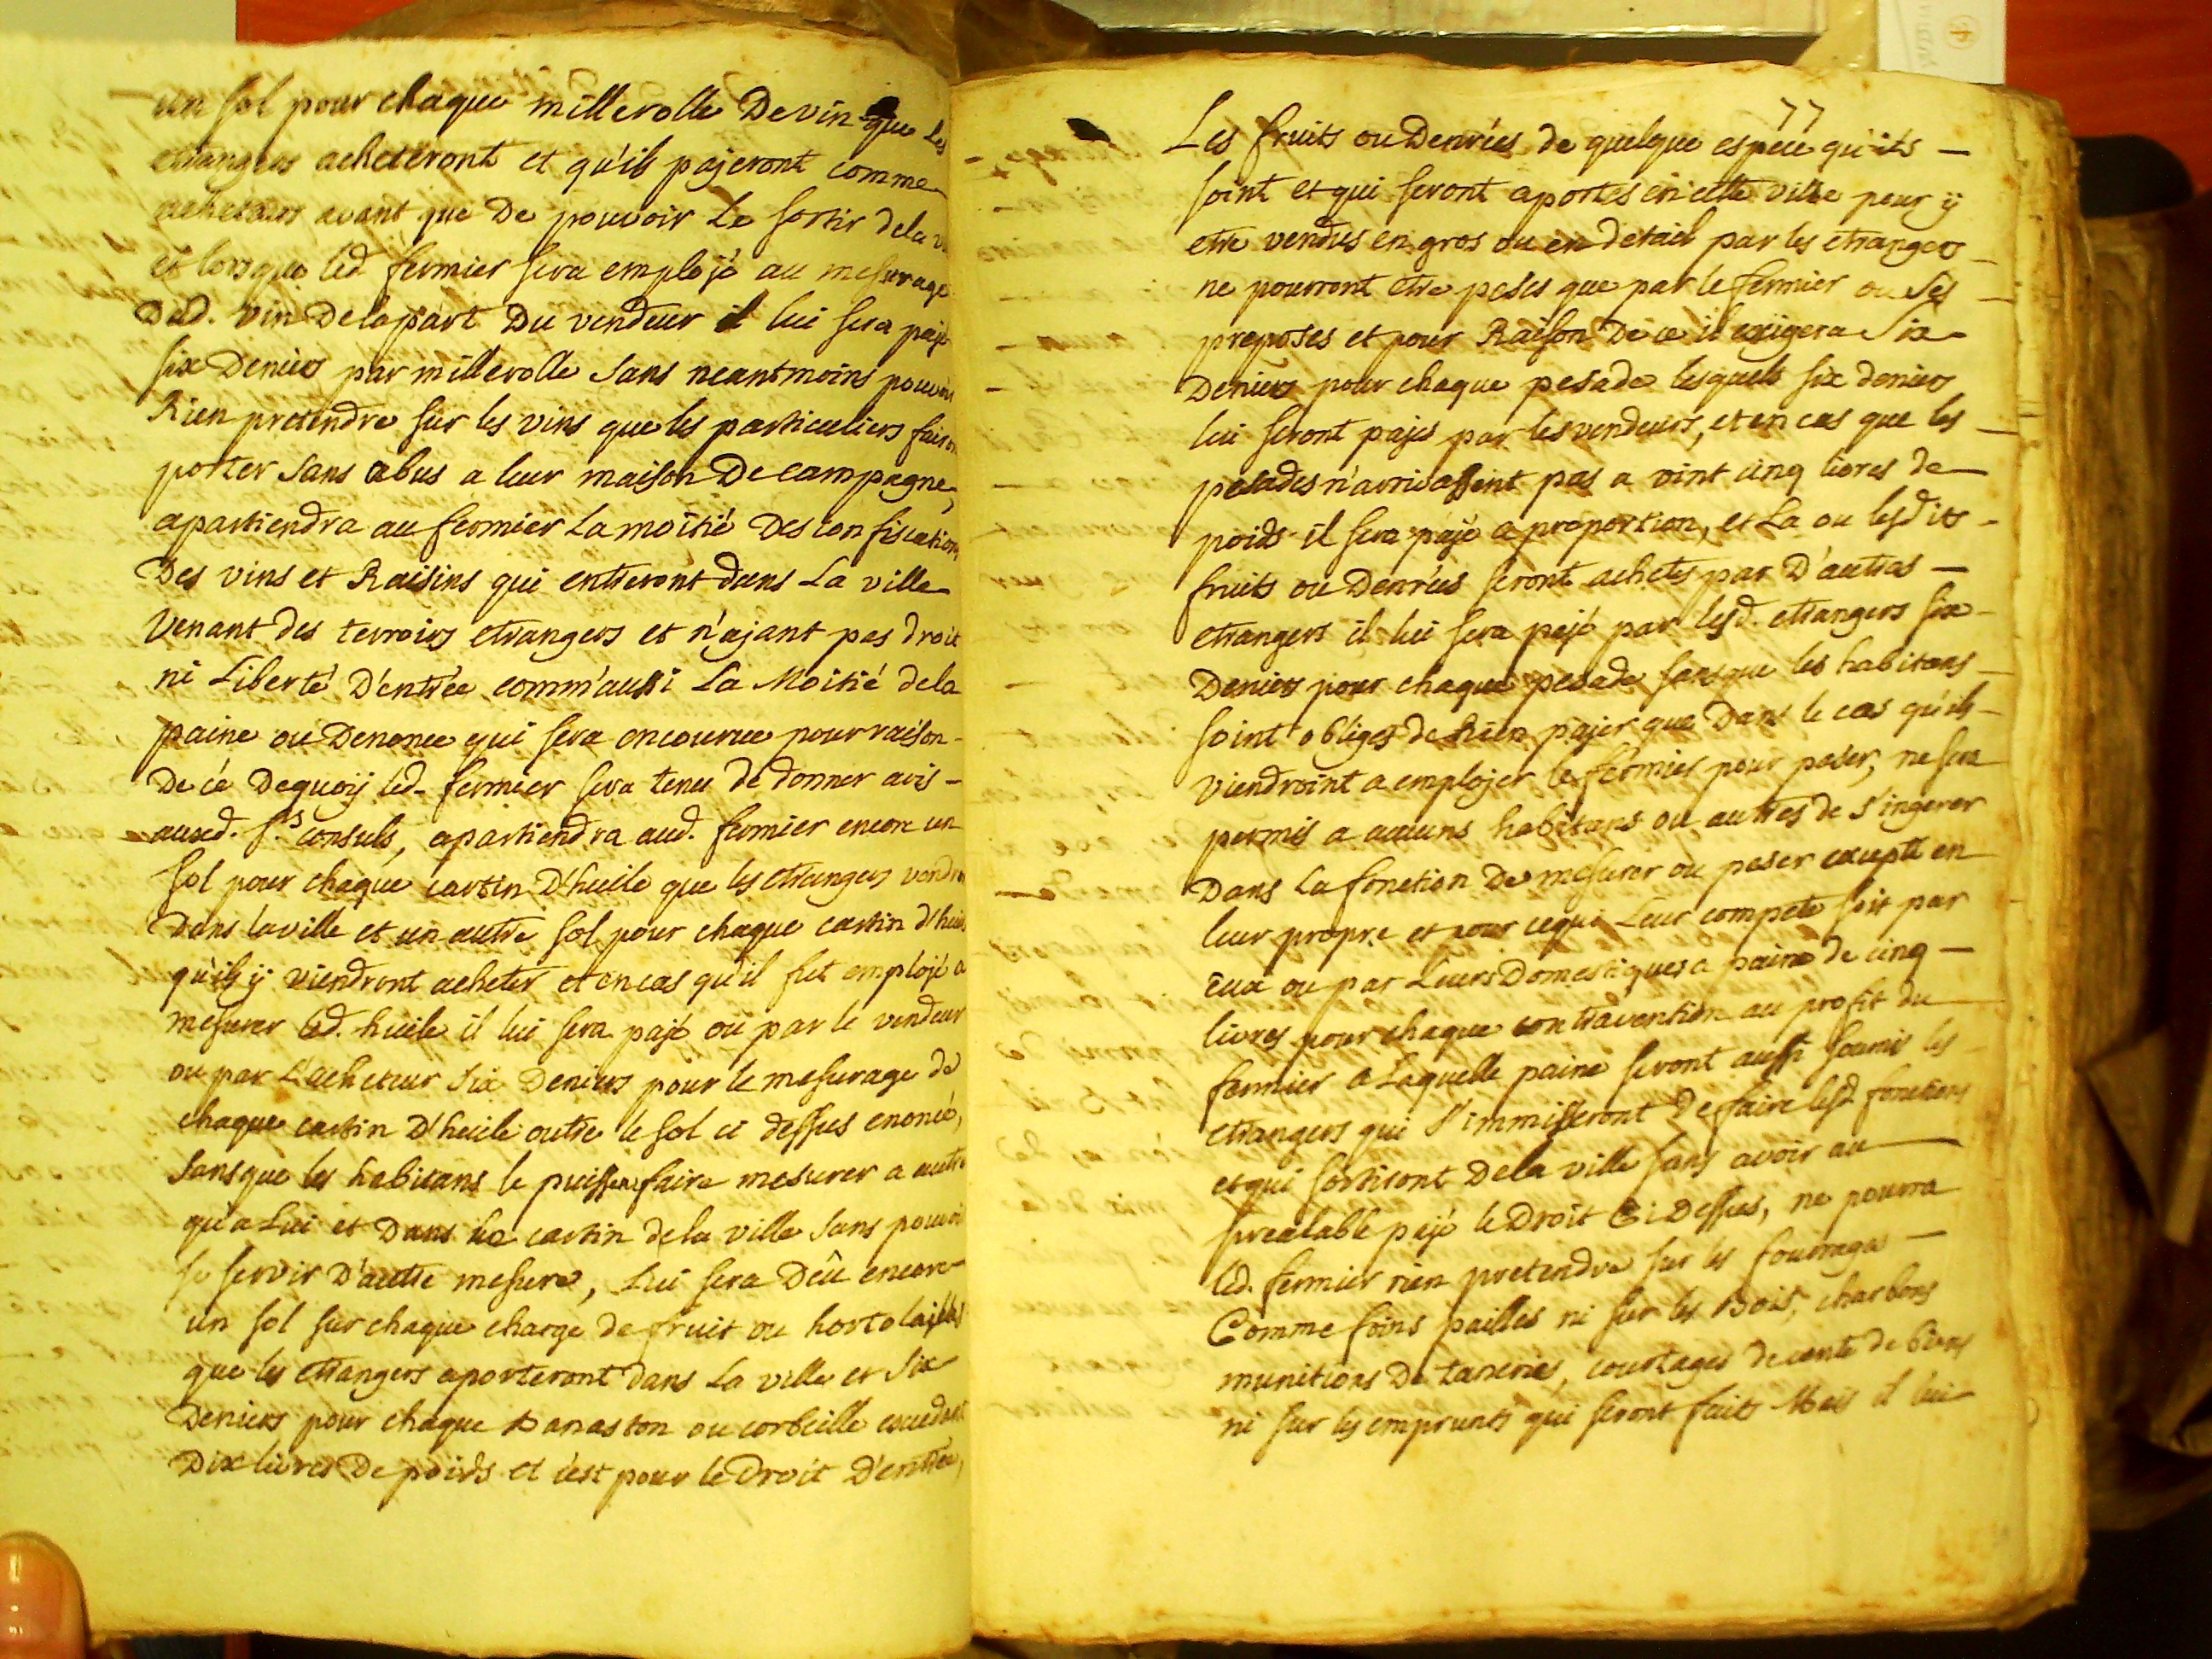 un sol pour chaque millerolle De vin que Les
etrangers acheteront et qu'ils pajeront comme
acheteurs avant que De pouvoir Le sortir dela
et lorsque led. fermier sera emploÿé au mesurage
Dud. vin De la part Du vendeur il lui sera pajé
six Deniers par millerolle sans neantmoins pouvoir
Rien pretendre sur les vins que les particuliers fairon
porter sans abus a leur maison De campagne,
apartiendra au fermier La moitié Des confiscations
Des vins et Raisins qui entreront dans La ville
Venant des terroirs etrangers et n'ajant pas droit
ni Liberté D'entrée comm'aussi La Moitié dela
paine ou Denonce qui sera encourue pour raison
De cé Dequoÿ led. fermier sera tenu de donner avis
auxd. s.rs consuls, apartiendra aud. fermier encore un
sol pour chaque cartin D'huile que les etrangers vendron
Dans la ville et un autre sol pour chaque cartin d'huile
qu'ils ÿ viendront acheter et en cas qu'il fut emplojé a
mesurer led. huile il lui sera pajé ou par le vendeur
ou par L'acheteur six Deniers pour le mesurage de
chaque cartin D'huile outre le sol ci dessus enoncé,
sans que les habitans le puissent faire mesurer a autre
qu'a Lui et Dans le cartin dela ville sans pouvoir
se servir D'autre mesure, Lui sera Dêu encore
un sol sur chaque charge de fruit ou hortolailles
que les etrangers aporteront dans La ville et six
Deniers pour chaque Banaston ou corbeille excedant
Dix livres De poids et c'est pour le Droit D'entrée,
77
Les fruits ou Denrées de quelque espéce qu'ils
soint et qui seront aportés en cette ville pour ÿ
etre vendus en gros ou en detail par les etrangers
ne pourront etre pesés que par le fermier ou ses
preposés et pour Raison De ce il exigera six
Deniers pour chaque pesade lesquels six deniers
lui seront pajés par les vendeurs, et en cas que les
pesades n'arrivassent pas a vint cinq livres de
poids il sera pajé a proportion, et La ou lesdits
fruits ou Denrées seront achetés par D'autres
etrangers il lui sera pajé par lesd. etrangers six
Deniers pour chaque pesade sans que les habitans
soint obligés de Rien pajer que Dans le cas qu'ils
viendroint a emplojer le fermier pour peser, ne sera
permis a aucuns habitans ou autres de s'ingerer
Dans La fonction De mesurer ou peser excepté en
leur propre et pour cequi Leur compete soit par
Eux ou par Leurs Domestiques a paine de cinq
livres pour chaque contravention au profit du
fermier a Laquelle paine seront aussi soumis les
etrangers qui s'immisseront De faire lesd. fonctions
et qui sortiront Dela ville sans avoir au
prealable pajé le Droit Ci Dessus, ne pourra
led. fermier rien pretendre sur les fourrages
Comme foins pailles ni sur les Bois, charbons
munitions De tanerie, courtages de vente de biens
ni sur les emprunts qui seront faits Mais il lui